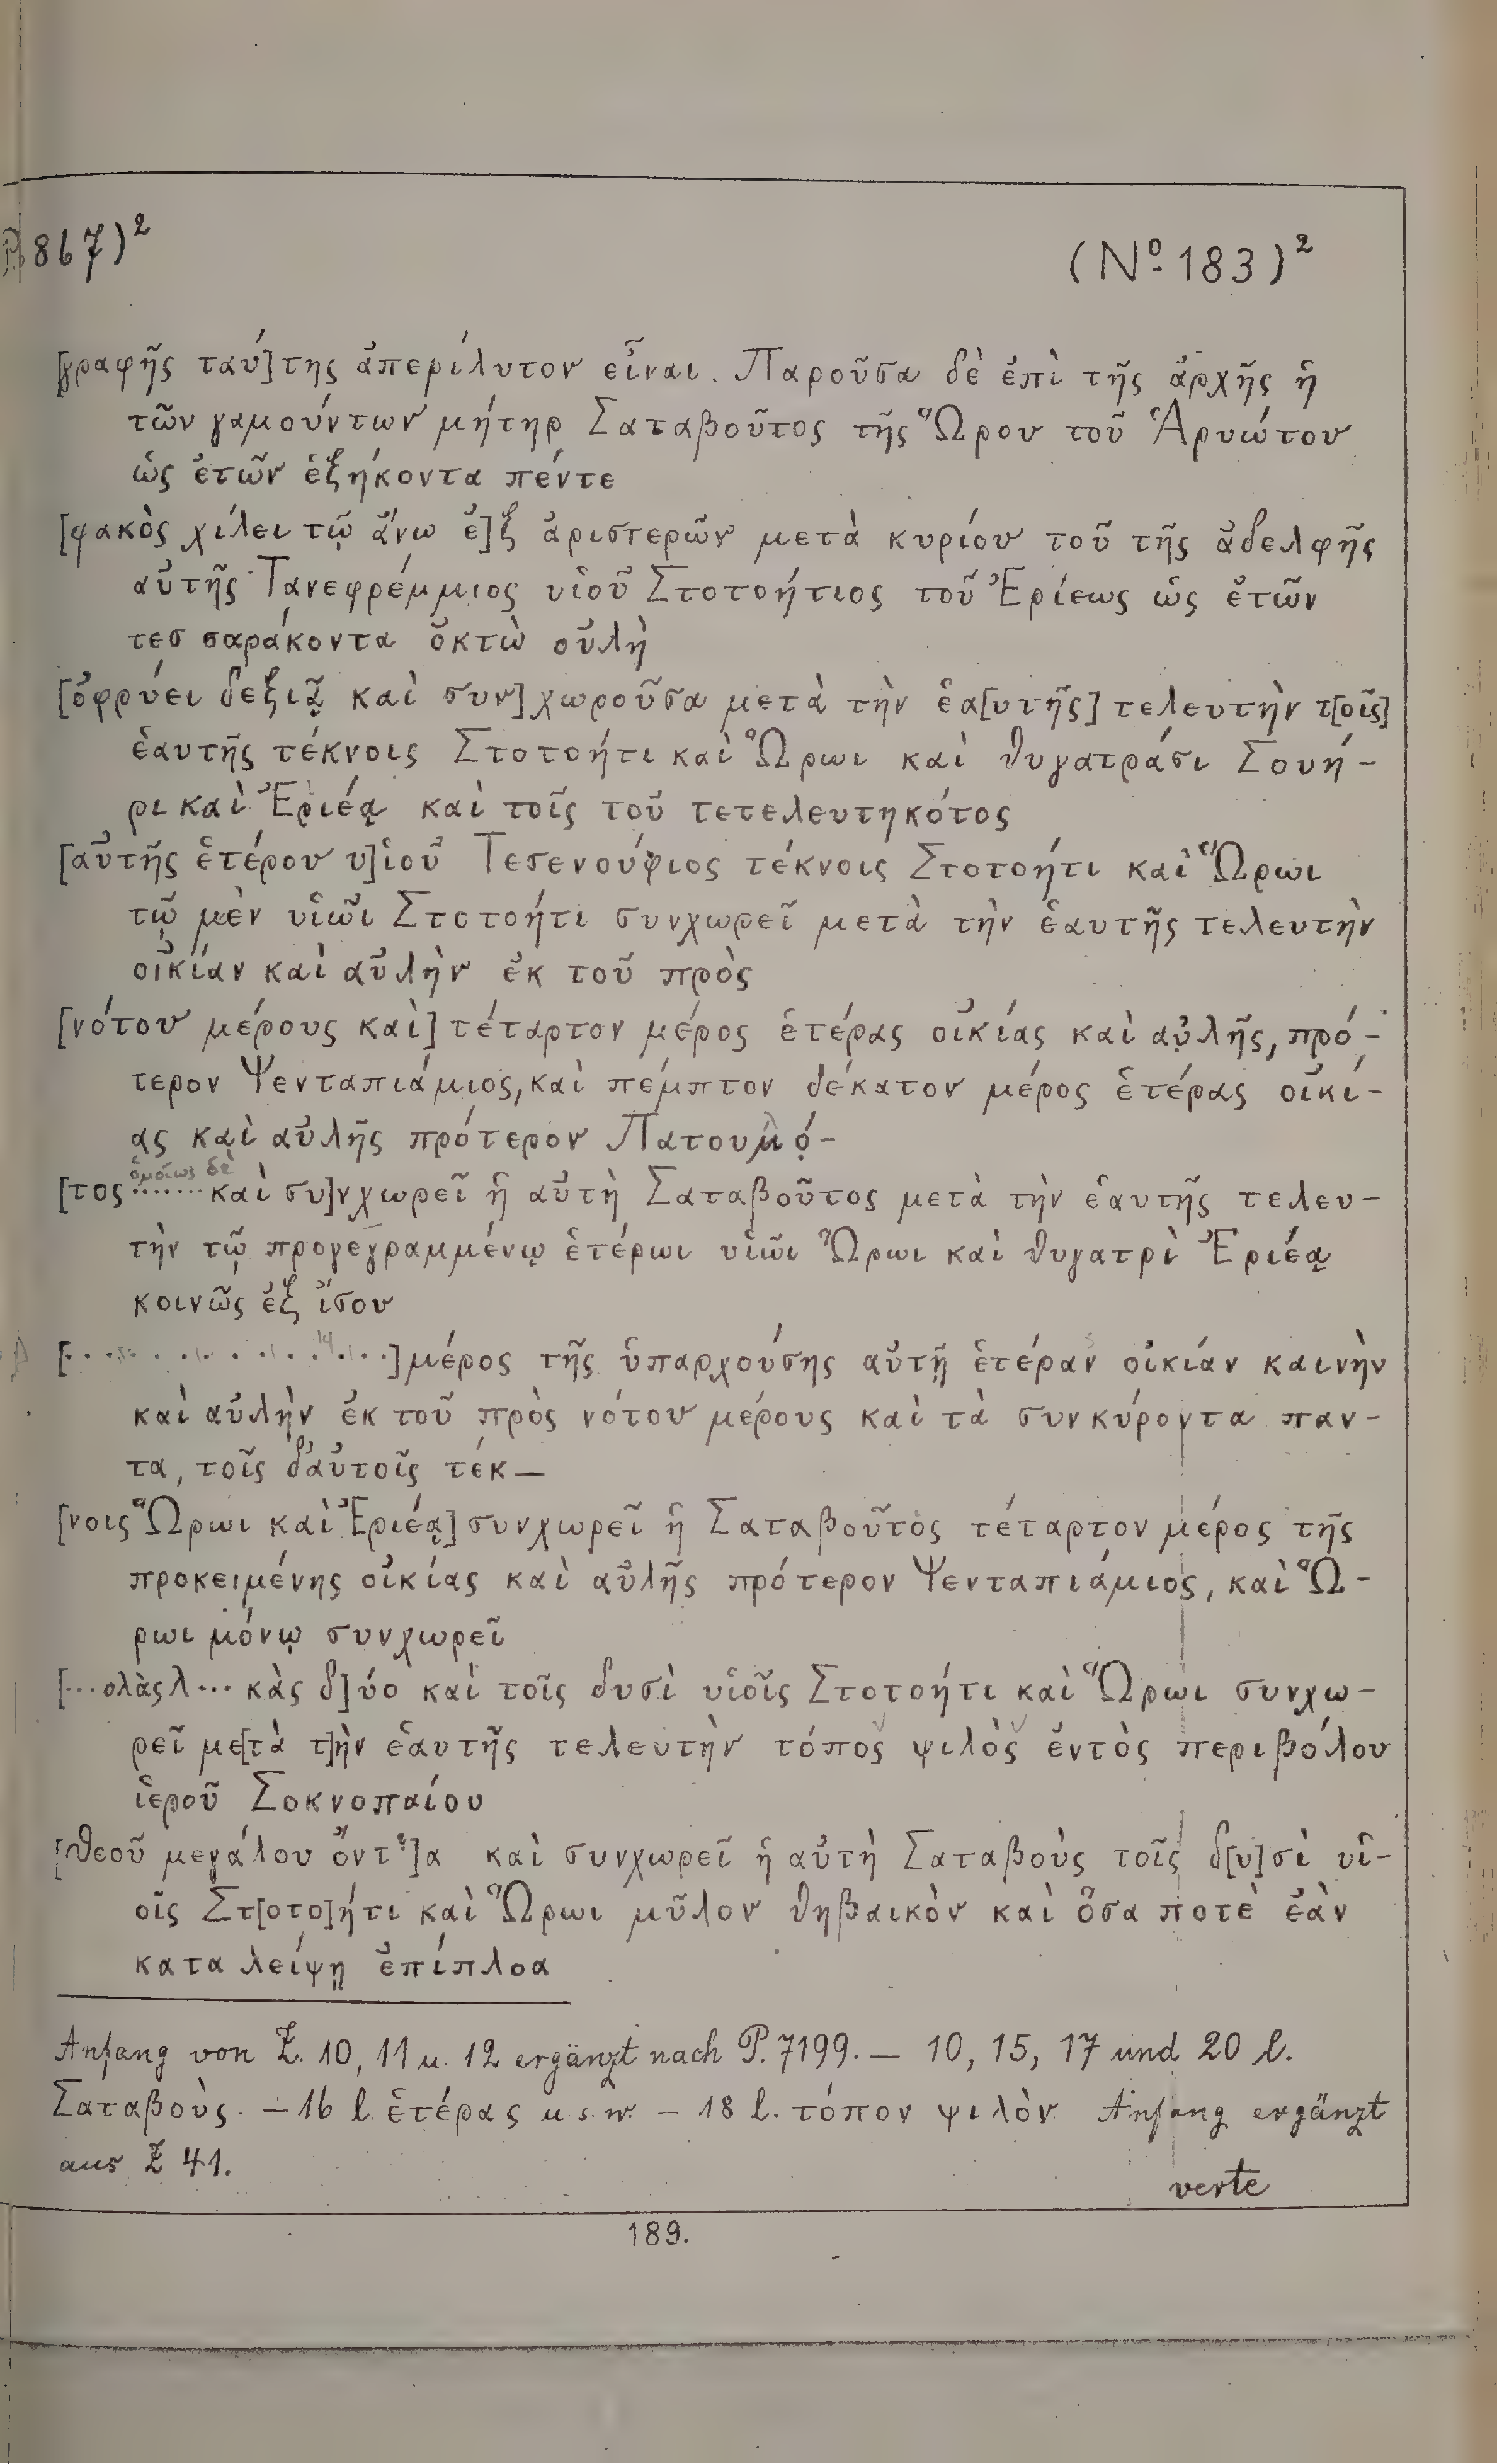 P. 867)²
(Nº 183)²
[γραφῆς ταύ]της ἀπερίλυτον εἶναι. Παροῦσα δὲ ἐπὶ τῆς ἀρχῆς ἡ
τῶν γαμούντων μήτηρ Σαταβοῦτος τῆς Ὥρου τοῦ Ἁρυώτου
ὡς ἐτῶν ἑξήκοντα πέντε
[φακὸς χίλει τῷ ἄνω ἐ]ξ ἀριστερῶν μετὰ κυρίου τοῦ τῆς ἀδελφῆς
αὐτῆς Τανεφρέμμιος υἱοῦ Στοτοήτιος τοῦ Ἑρίεως ὡς ἐτῶν
τεσσαράκοντα ὀκτὼ οὐλὴ
[ὀφρύει δεξιᾷ καὶ συν]χωροῦσα μετὰ τὴν ἑα[υτῆς] τελευτὴν τ[οῖς]
ἑαυτῆς τέκνοις Στοτοήτι καὶ Ὥρωι καὶ θυγατράσι Σουή-
ρι καὶ Ἐριέᾳ καὶ τοῖς τοῦ τετελευτηκότος
[αὐτῆς ἑτέρου υ]ἱοῦ Τεσενούφιος τέκνοις Στοτοήτι καὶ Ὥρωι
τῷ μὲν υἱῶι Στοτοήτι συνχωρεῖ μετὰ τὴν ἑαυτῆς τελευτὴν
οἰκίαν καὶ αὐλὴν ἐκ τοῦ πρὸς
[νότου μέρους καὶ] τέταρτον μέρος ἑτέρας οἰκίας καὶ αὐλῆς, πρό-
τερον Ψενταπιάμιος, καὶ πέμπτον δέκατον μέρος ἑτέρας οἰκί-
ας καὶ αὐλῆς πρότερον Πατουμό-
ὁμοίως δὲ
[τος ....... καὶ συ]νχωρεῖ ἡ αὐτὴ Σαταβοῦτος μετὰ τὴν ἑαυτῆς τελευ-
τὴν τῷ προγεγραμμένῳ ἑτέρωι υἱῶι Ὥρωι καὶ θυγατρὶ Ἐριέᾳ
κοινῶς ἐξ ἴσου
[. . . . . . . . . . . . . .] μέρος τῆς ὑπαρχούσης αὐτῇ ἑτέραν οἰκίαν καινὴν
καὶ αὐλὴν ἐκ τοῦ πρὸς νότου μέρους καὶ τὰ συνκύροντα παν-
τα, τοῖς δ'αὐτοῖς τέκ-
[νοις Ὥρωι καὶ Ἐριέᾳ] συνχωρεῖ ἡ Σαταβοῦτος τέταρτον μέρος τῆς
προκειμένης οἰκίας καὶ αὐλῆς πρότερον Ψενταπιάμιος, καὶ Ὥ-
ρωι μόνῳ συνχωρεῖ
[...ολὰς λ... κὰς δ]ύο καὶ τοῖς δυσὶ υἱοῖς Στοτοήτι καὶ Ὥρωι συνχω-
ρεῖ με[τὰ τ]ὴν ἑαυτῆς τελευτὴν τόπος ψιλὸς ἐντὸς περιβόλου
ἱεροῦ Σοκνοπαίου
[θεοῦ μεγάλου ὄντ]α καὶ συνχωρεῖ ἡ αὐτὴ Σαταβοὺς τοῖς δ[υ]σὶ υἱ-
οῖς Στ[οτο]ήτι καὶ Ὥρωι μῦλον θηβαικὸν καὶ ὅσα ποτὲ ἐὰν
καταλείψῃ ἐπίπλοα
Anfang von Z. 10, 11 u. 12 ergänzt nach P. 7199. — 10, 15, 17 und 20 l.
Σαταβοὺς. — 16 l. ἑτέρας u. s. w. — 18 l. τόπον ψιλὸν Anfang ergänzt
aus Z 41.
verte
189.